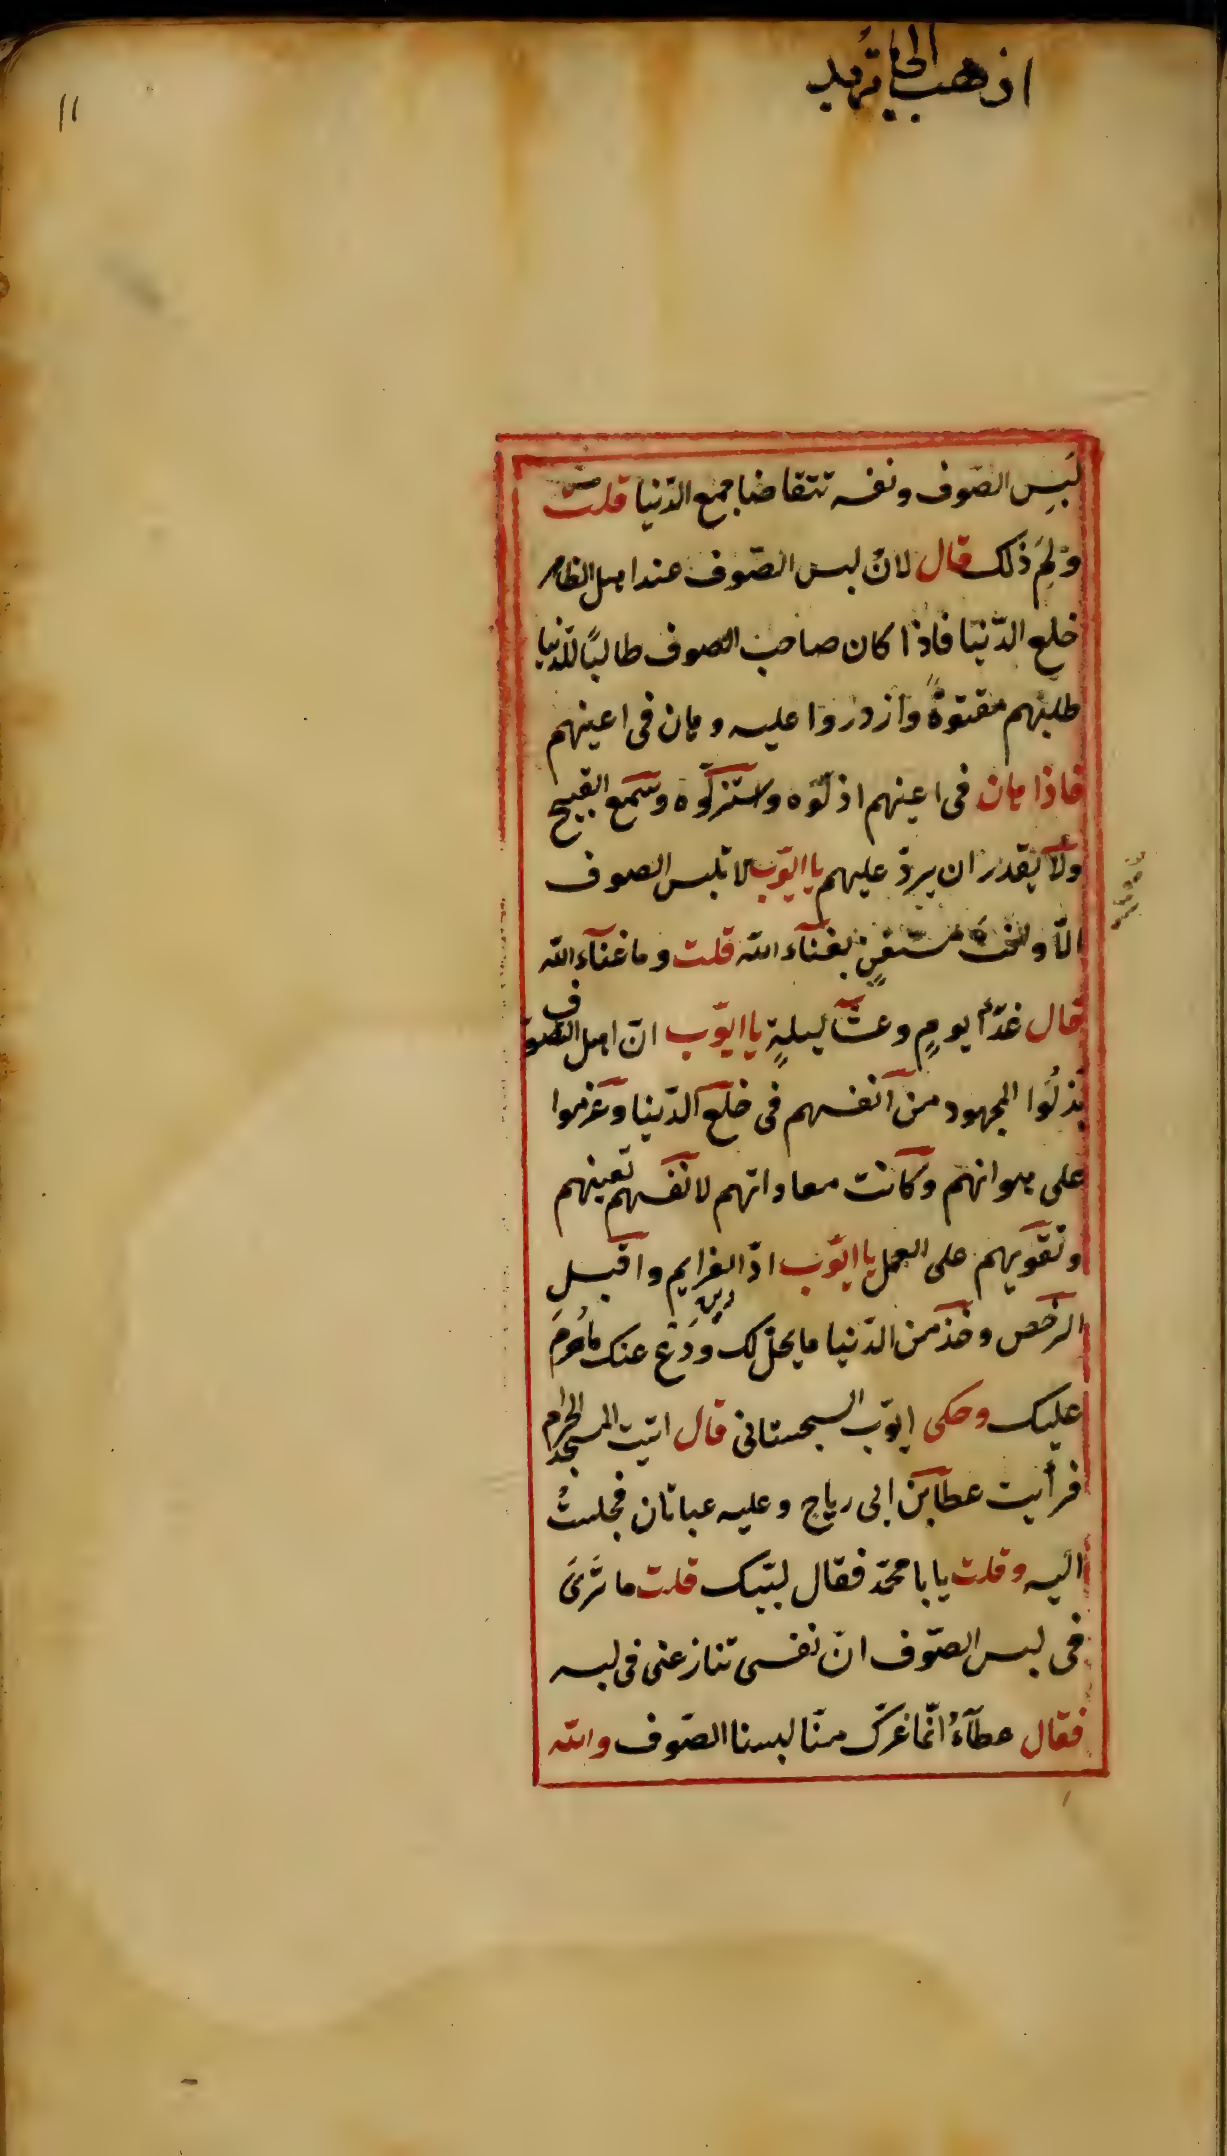 اذهب الى ترید
١١
لَبِس الصّوف ونفسه تتقاضا جمع الدّنيا قلت
ولِمَ ذلك قال لانّ لبس الصّوف عند اهل الظاهر
خلع الدّنيا فاذا كان صاحب الصوف طالبًا للدّنيا
طلبتهم مقتوهُ وازدروا عليه وهان فى اعينهم
فاذا هان فى اعينهم اذلّوه واستنزلوه وسمع القبيح
ولا يقدر ان يردّ عليهم يا ايّوب لا تلبس الصوف
الّا وانت مستغنٍ بغناء الله قلت وما غناء الله
قال غدآء يومٍ وعشآ ليلةٍ يا ايّوب انّ اهل التصوّف
بَذلُوا المجهود من انفسهم فى خلع الدّنيا وعزموا
على هوانهم وكانت معاداتهم لانفسهم تعينهم
وتقويهم على العمل يا ايّوب ادّ الفرايم واقبل
الرخص وخذ من الدّنيا ما يحلّ لك ودَع عنك ما حُرمَ
عليك وحكى ايّوب السجستانى قال اتيت المسجد الحرام
فرأيت عطا بن ابى رياح وعليه عباتان فجلستُ
اليه وقلت يا با محمّد فقال لبّيك قلت ما تَرَىَ
فى لبس الصّوف انّ نفسى تنازعنى فى لبسه
فقال عطآءُ انّما غرّك منّا لبسنا الصّوف والله